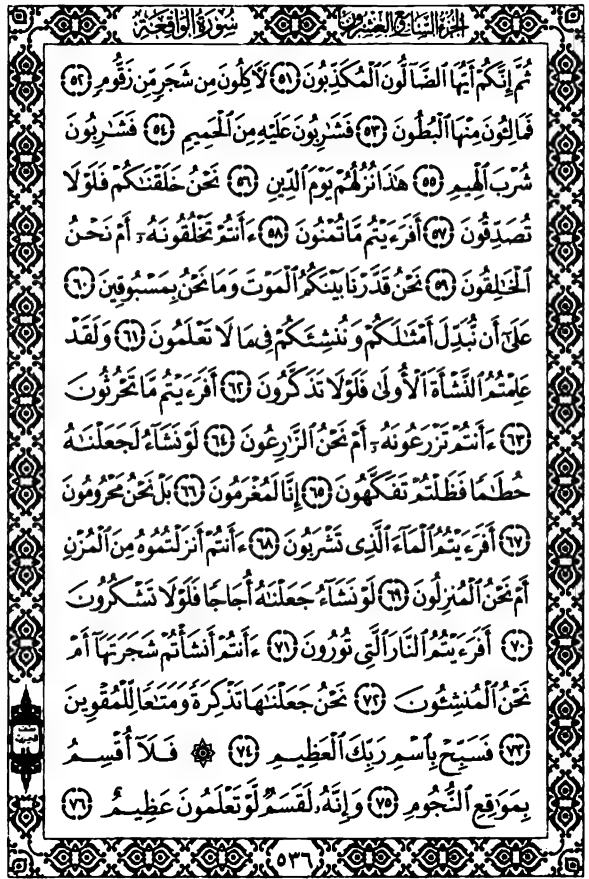 سُورَةُ الوَاقِعَةِ الجُزْءُ السَّابِعُ وَالعِشْرُونَ
ثُمَّ إِنَّكُمْ أَيُّهَا ٱلضَّآلُّونَ ٱلْمُكَذِّبُونَ ٥١ لَآكِلُونَ مِن شَجَرٍ مِّن زَقُّومٍ ٥٢
فَمَالِـُٔونَ مِنْهَا ٱلْبُطُونَ ٥٣ فَشَٰرِبُونَ عَلَيْهِ مِنَ ٱلْحَمِيمِ ٥٤ فَشَٰرِبُونَ
شُرْبَ ٱلْهِيمِ ٥٥ هَٰذَا نُزُلُهُمْ يَوْمَ ٱلدِّينِ ٥٦ نَحْنُ خَلَقْنَٰكُمْ فَلَوْلَا
تُصَدِّقُونَ ٥٧ أَفَرَءَيْتُم مَّا تُمْنُونَ ٥٨ ءَأَنتُمْ تَخْلُقُونَهُۥٓ أَمْ نَحْنُ
ٱلْخَٰلِقُونَ ٥٩ نَحْنُ قَدَّرْنَا بَيْنَكُمُ ٱلْمَوْتَ وَمَا نَحْنُ بِمَسْبُوقِينَ ٦٠
عَلَىٰٓ أَن نُّبَدِّلَ أَمْثَٰلَكُمْ وَنُنشِئَكُمْ فِى مَا لَا تَعْلَمُونَ ٦١ وَلَقَدْ
عَلِمْتُمُ ٱلنَّشْأَةَ ٱلْأُولَىٰ فَلَوْلَا تَذَكَّرُونَ ٦٢ أَفَرَءَيْتُم مَّا تَحْرُثُونَ
٦٣ ءَأَنتُمْ تَزْرَعُونَهُۥٓ أَمْ نَحْنُ ٱلزَّٰرِعُونَ ٦٤ لَوْ نَشَآءُ لَجَعَلْنَٰهُ
حُطَٰمًا فَظَلْتُمْ تَفَكَّهُونَ ٦٥ إِنَّا لَمُغْرَمُونَ ٦٦ بَلْ نَحْنُ مَحْرُومُونَ
٦٧ أَفَرَءَيْتُمُ ٱلْمَآءَ ٱلَّذِى تَشْرَبُونَ ٦٨ ءَأَنتُمْ أَنزَلْتُمُوهُ مِنَ ٱلْمُزْنِ
أَمْ نَحْنُ ٱلْمُنزِلُونَ ٦٩ لَوْ نَشَآءُ جَعَلْنَٰهُ أُجَاجًا فَلَوْلَا تَشْكُرُونَ
٧٠ أَفَرَءَيْتُمُ ٱلنَّارَ ٱلَّتِى تُورُونَ ٧١ ءَأَنتُمْ أَنشَأْتُمْ شَجَرَتَهَآ أَمْ
نَحْنُ ٱلْمُنشِـُٔونَ ٧٢ نَحْنُ جَعَلْنَٰهَا تَذْكِرَةً وَمَتَٰعًا لِّلْمُقْوِينَ
٧٣ فَسَبِّحْ بِٱسْمِ رَبِّكَ ٱلْعَظِيمِ ٧٤ ۞ فَلَآ أُقْسِمُ
بِمَوَٰقِعِ ٱلنُّجُومِ ٧٥ وَإِنَّهُۥ لَقَسَمٌ لَّوْ تَعْلَمُونَ عَظِيمٌ ٧٦
٥٣٦